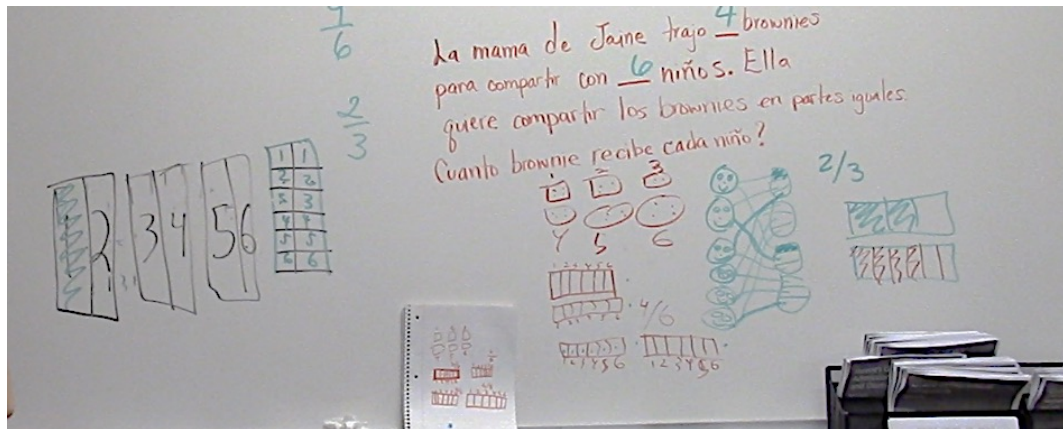 La mama de Jaine trajo 4 brownies
para compartir con 6 niños. Ella
quere compartir los brownies en partes iguales.
Cuanto brownie recibe cada niño?
6
2/3
2 3 4 5 6
1 1
2 2
3 3
4 4
5 5
6 6
1 2 3
4 5 6
1 2 3 4 5 6
4/6
1 2 3 4 5 6
2/3